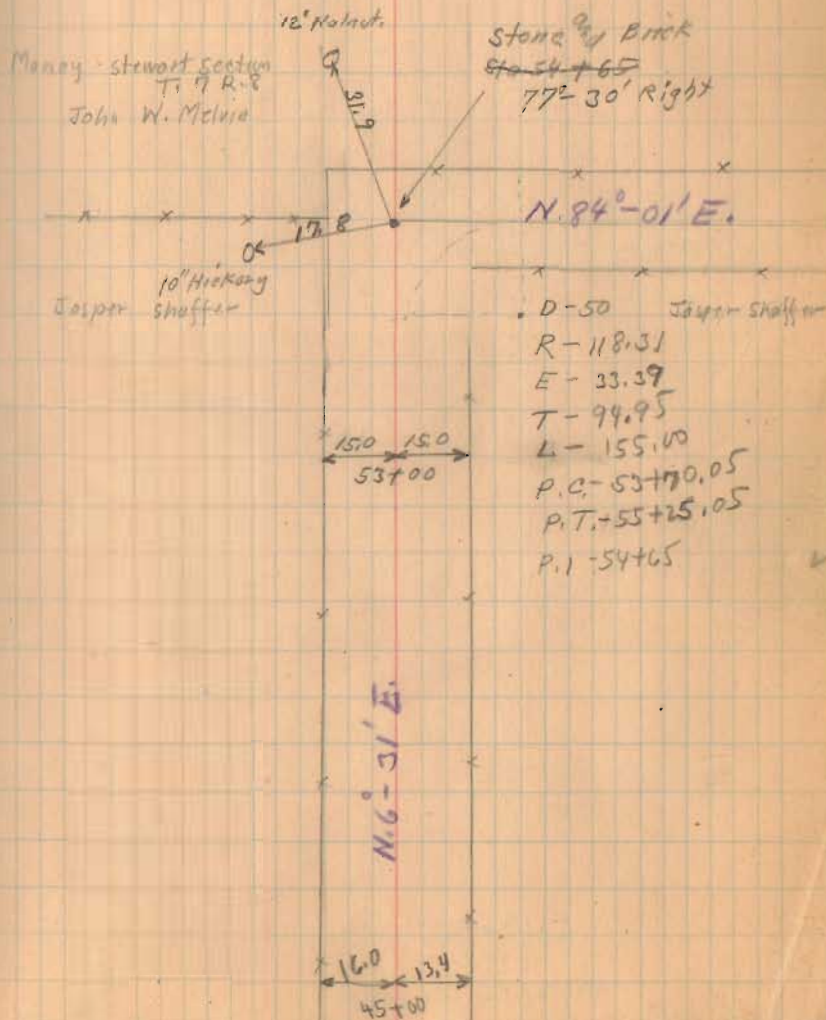 12" Walnut.
Stone and Brick
Sta 54+65
77°-30' Right
Money - Stewart Section
T. 7 R. 8
John W. Melvin
31.9
N. 84°-01' E.
17.8
10" Hickory
Jasper Shaffer
. D-50 Jasper Shaffer
R - 118.31
E - 33.39
T - 94.95
L - 155.00
P.C.- 53+70.05
P.T.- 55+25.05
P.I - 54+65
15.0 15.0
53+00
N. 6°- 31' E.
16.0 13.4
45+00